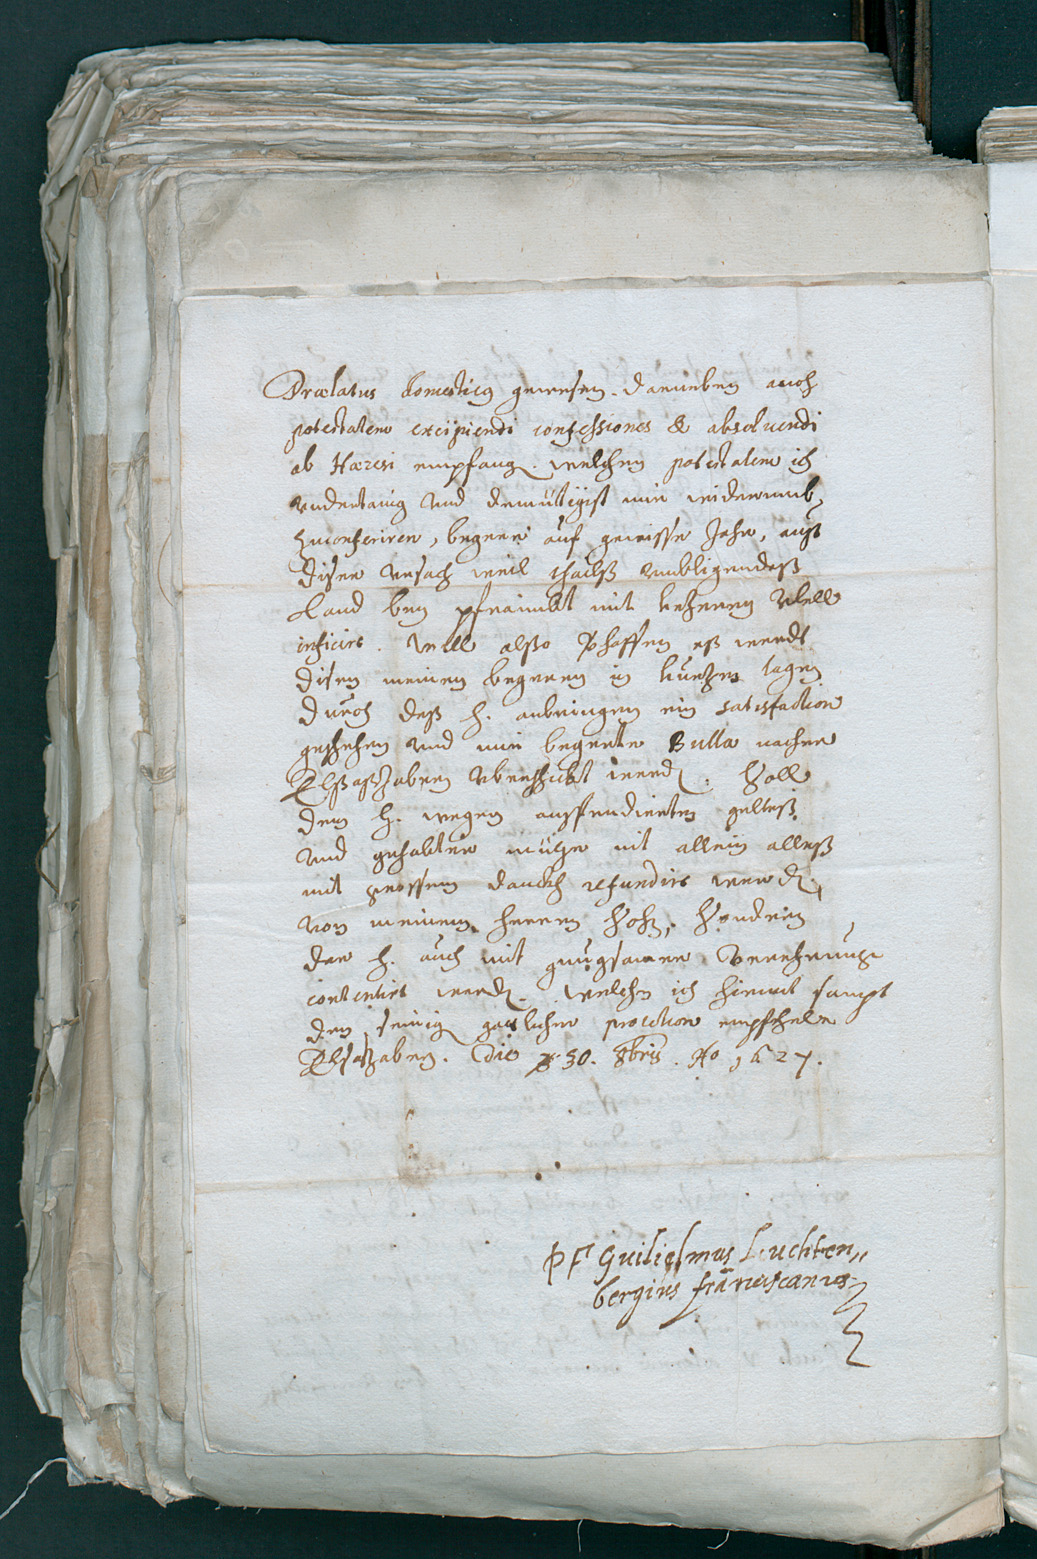 Prælatus domesticus gewesen. darneben auch
potestatem excipiendi confessiones & absoluendi
ab Hæresi empfang. welchen potestatem ich
vndertänig vnd demüttigist mir widerumb
zu conferiren, begere auf gewisse Jahr, auß
diser vrsach weil thailß vmbligendeß
Land ben mit ketzerey
inficirt. Will also eß werdt
disem meinem begeren in kurtzen tagen
durch deß H. anbringen ein satisfaction
geschehen vnd mir begerte Bulla nacher
Elsaßzabern vberschickt werd. Soll
dem H. wegen außspendierten geltß
vnd gehabter mühe nit allein alleß
mit grossem danckh refundirt werd
von meinem herren Sondern
der H. auch mit gnugsamer verehrung
contentirt werd. welchen ich hiemit sampt
den seinig götlicher protection empfehle
Elsaßzabern. die 30. 8bris. Ao 1627.
P F Guilielmus Luchten„
bergius franciscanus